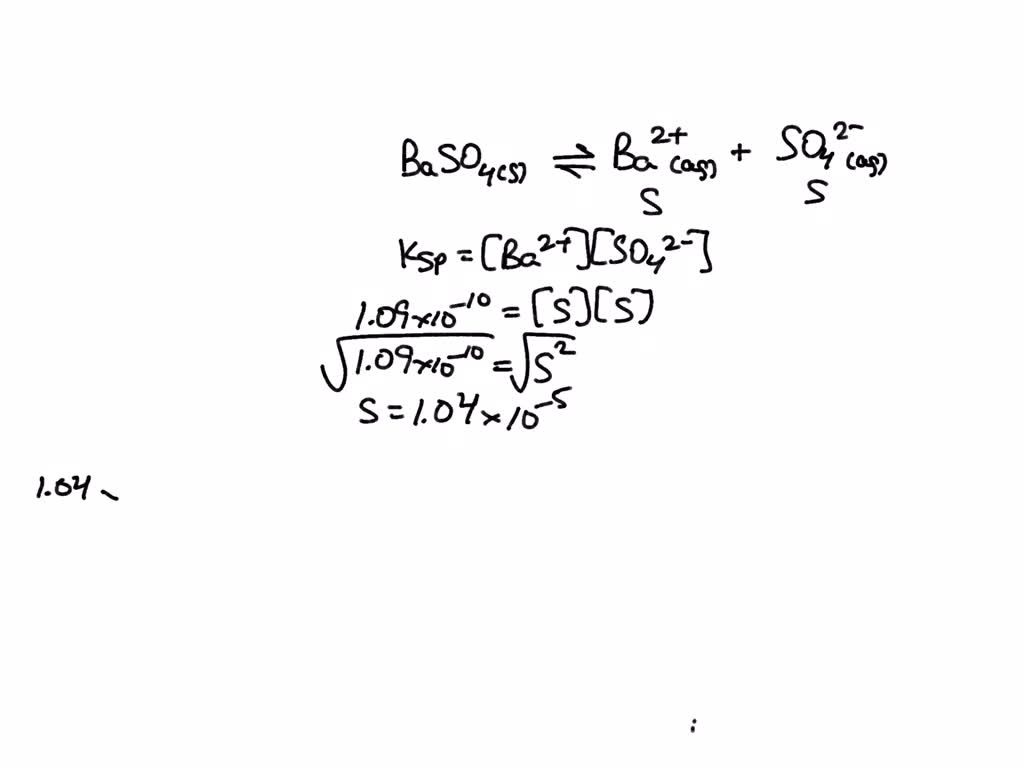 BaSO₄(s) ⇌ Ba²⁺(aq) + SO₄²⁻(aq)
S S
Ksp = [Ba²⁺][SO₄²⁻]
1.09×10⁻¹⁰ = [S][S]
√1.09×10⁻¹⁰ = √S²
S = 1.04×10⁻⁵
1.04